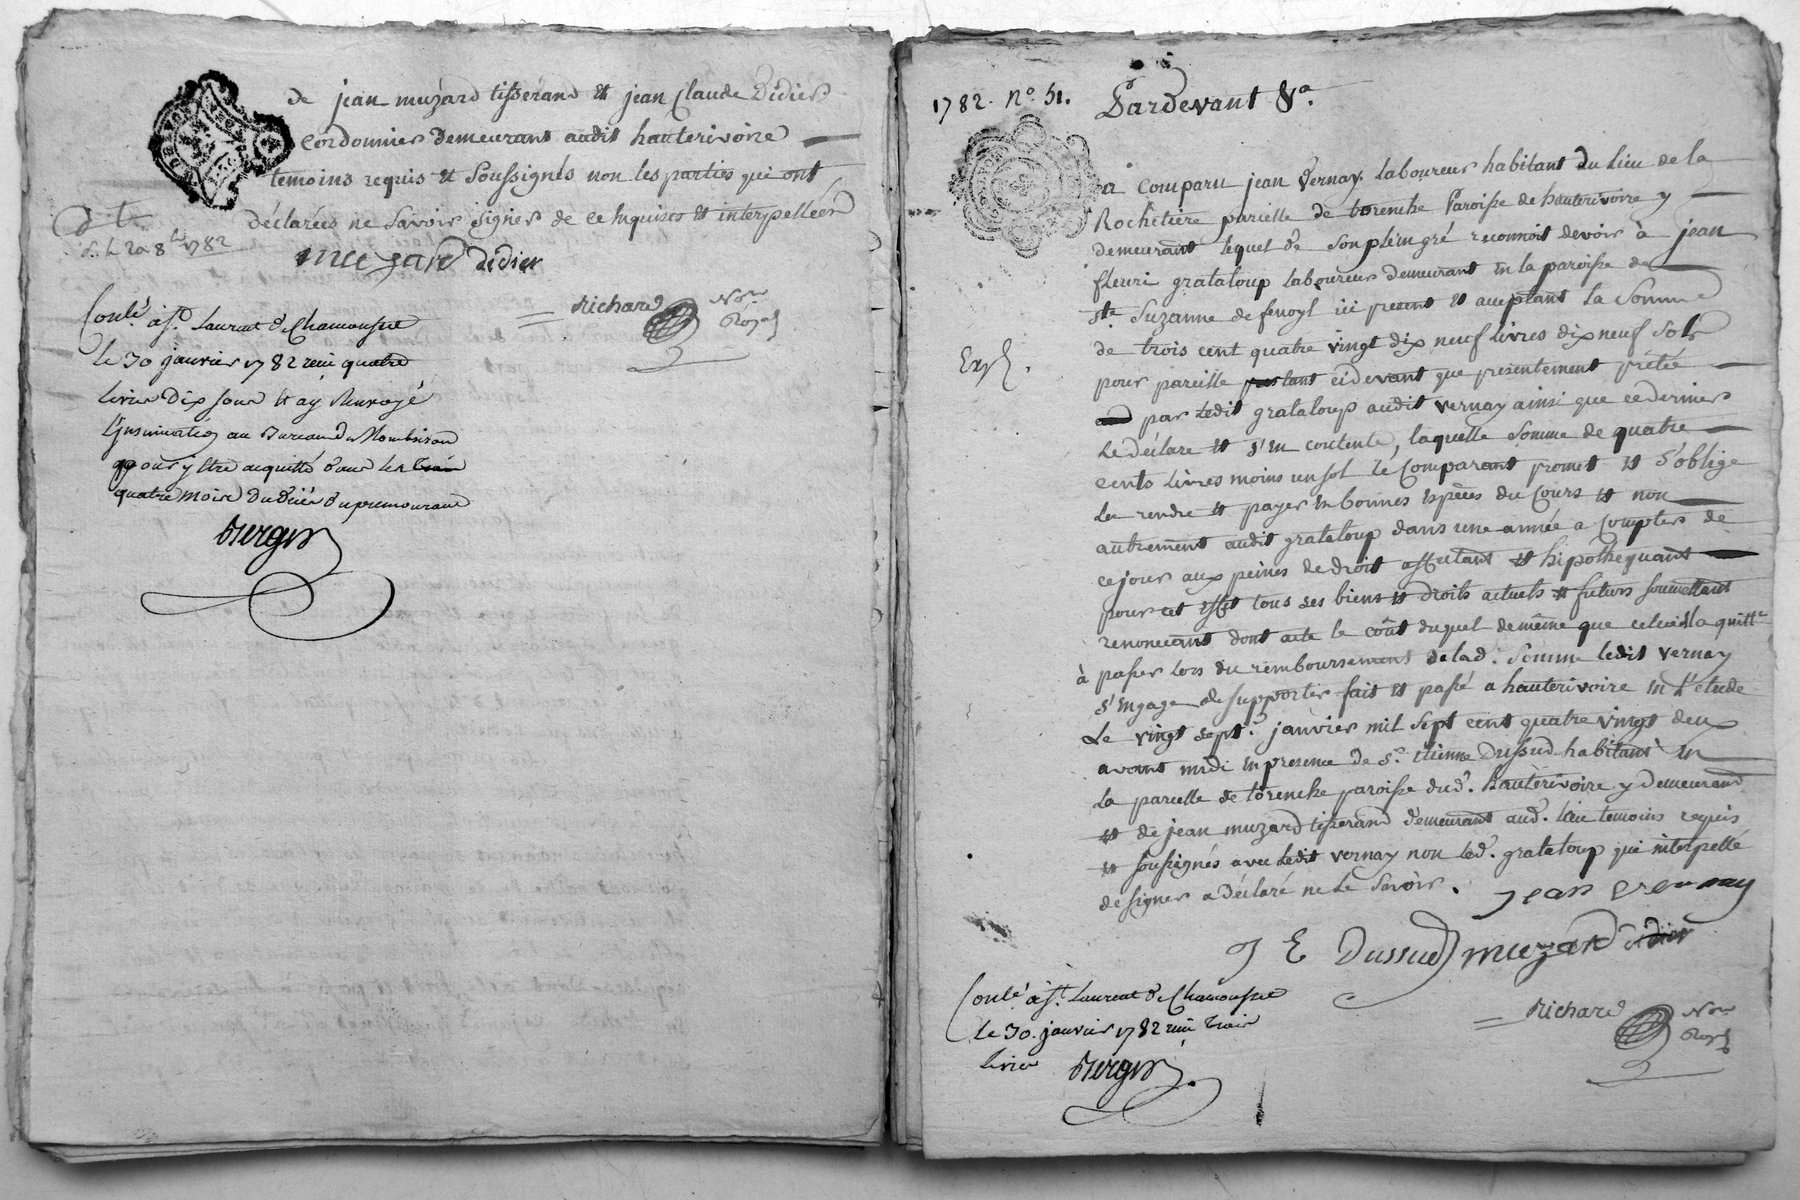 de jean muzard tisserand et jean Claude Didier
cordonnier demeurant audit hauterivoire
temoins requis et soussignés non les parties qui ont
déclarées ne savoir signer de ce enquises et interpellées
8bre 1782
muzard didier
Richard Nre
Royal
Conlé à St. Laurent de Chamousset
le 30 janvier 1782 reçu quatre
livres dix sous et ay renvoyé
l'insinuation au Bureau de Montbrison
pour y être acquitté dans les trois
quatre mois du décès du prémourant
Berger
1782. No. 51. Pardevant &a.
a comparu jean Vernay laboureur habitant du lieu de la
Rochetiere parcelle de torenche Paroisse de hauterivoire y
demeurant lequel de son plein gré reconnoit devoir à jean
fleuri grataloup laboureur demeurant en la paroisse de
ste. Suzanne de fenoyl ici present et acceptant la somme
de trois cent quatre vingt dix neuf livres dix neuf sols
pour pareille cidevant que presentement prêtée
par ledit grataloup audit vernay ainsi que ce dernier
le déclare et s'en contente, laquelle somme de quatre
cents livres moins un sol le comparant promet et s'oblige
de rendre et payer en bonnes espèces du cours et non
autrement audit grataloup dans une année a compter de
ce jour aux peines de droit affectant et hipothequant
pour cet effet tous ses biens et droits actuels et futurs soumettant
renoncant dont acte le coût duquel de même que celui de la quittce
à passer lors du remboursement de lad. somme ledit vernay
s'engage de supporter fait et passé a hauterivoire en l'etude
Le vingt sept. janvier mil sept cent quatre vingt deux
avant midi en presence de sr. etienne Dussud habitant en
la parcelle de torenche paroisse dud. hauterivoire y demeurant
et de jean muzard tisserand demeurant aud. lieu temoins requis
et soussignés avec ledit vernay non led. grataloup qui interpellé
de signer a déclaré ne le savoir.
Jean vernay
J E Dussud muzard didier
Richard Nre
Royal
Conlé à St. Laurent de Chamousset
le 30. janvier 1782 reçu trois
livres Berger